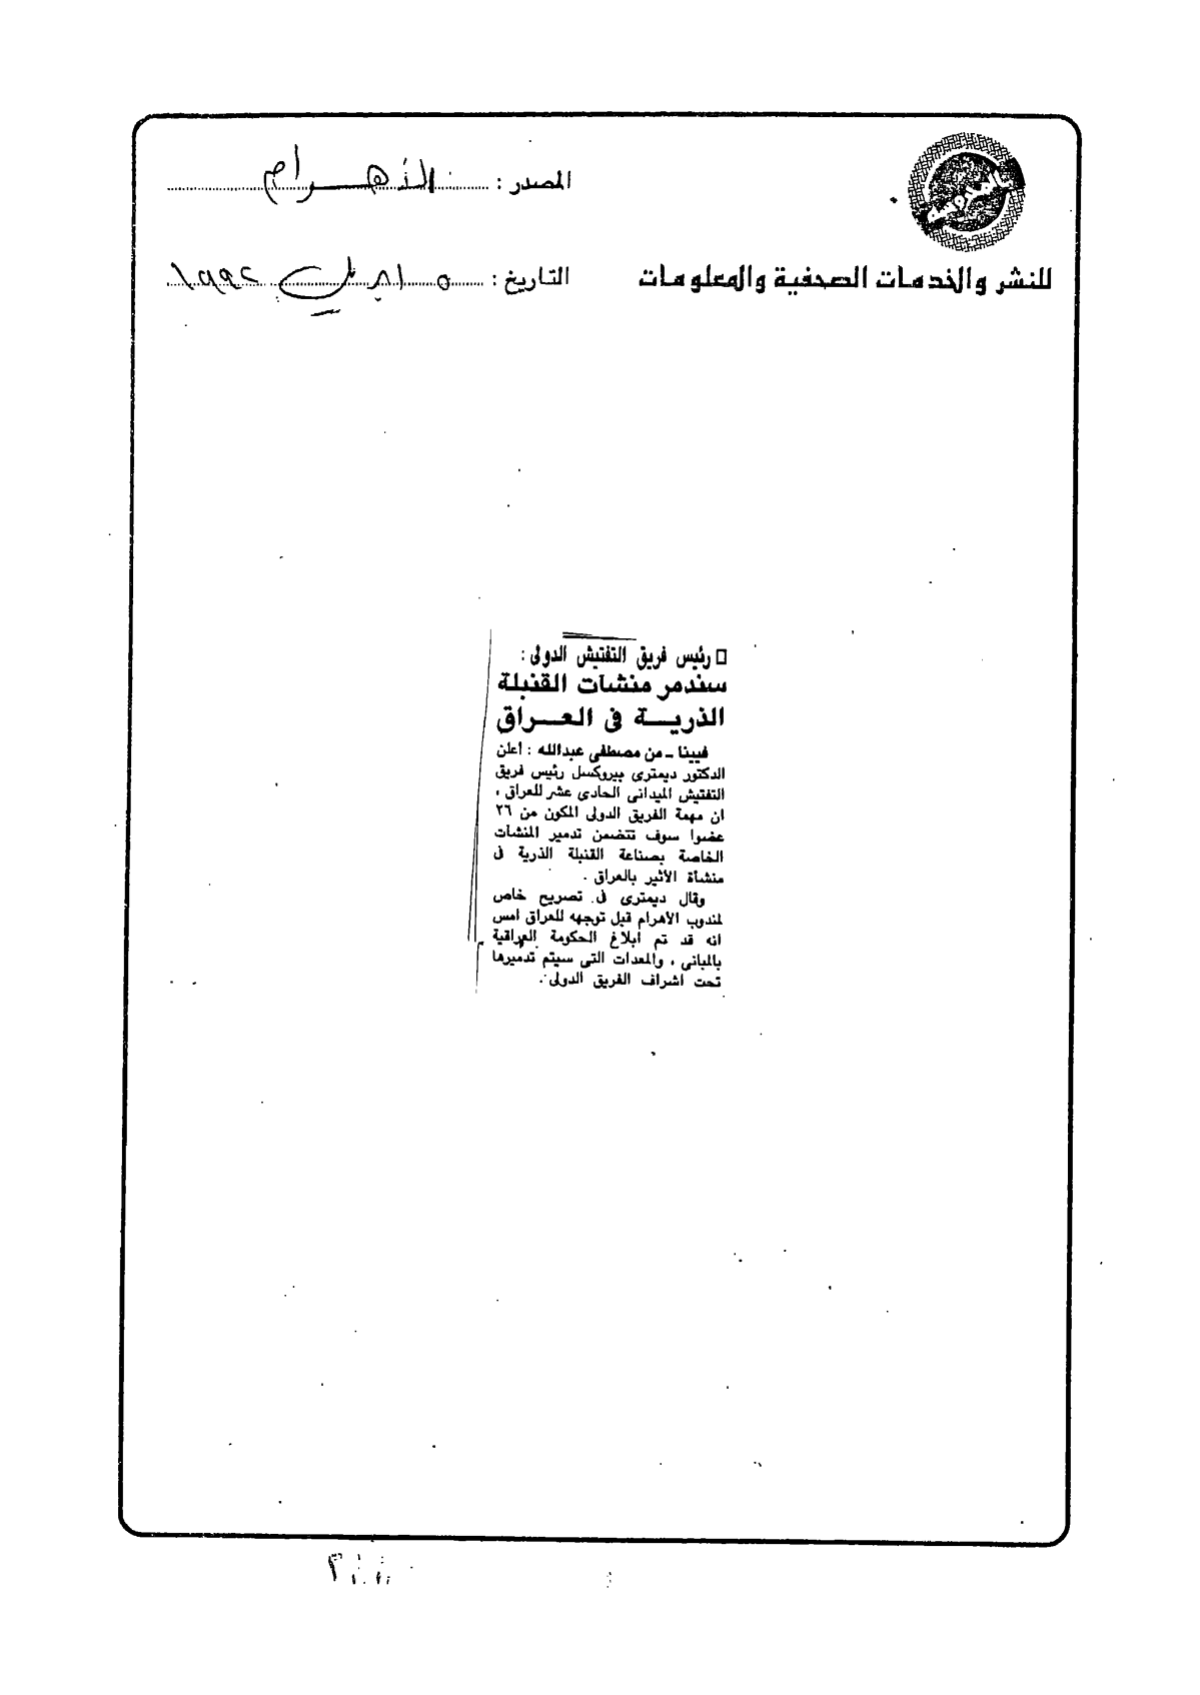 المصدر : الأهرام
للنشر والخدمات الصحفية والمعلومات
التاريخ : ٥ ابريل ١٩٩٢
رئيس فريق التفتيش الدولى :
سندمر منشات القنبلة
الذرية فى العراق
فيينا ـ من مصطفى عبدالله : أعلن
الدكتور ديمترى بيروكسل رئيس فريق
التفتيش الميدانى الحادى عشر للعراق ،
ان مهمة الفريق الدولى المكون من ٢٦
عضوا سوف تتضمن تدمير المنشات
الخاصة بصناعة القنبلة الذرية فى
منشأة الأثير بالعراق .
وقال ديمترى فى تصريح خاص
لمندوب الأهرام قبل توجهه للعراق امس
انه قد تم أبلاغ الحكومة العراقية
بالمبانى ، والمعدات التى سيتم تدميرها
تحت اشراف الفريق الدولى .